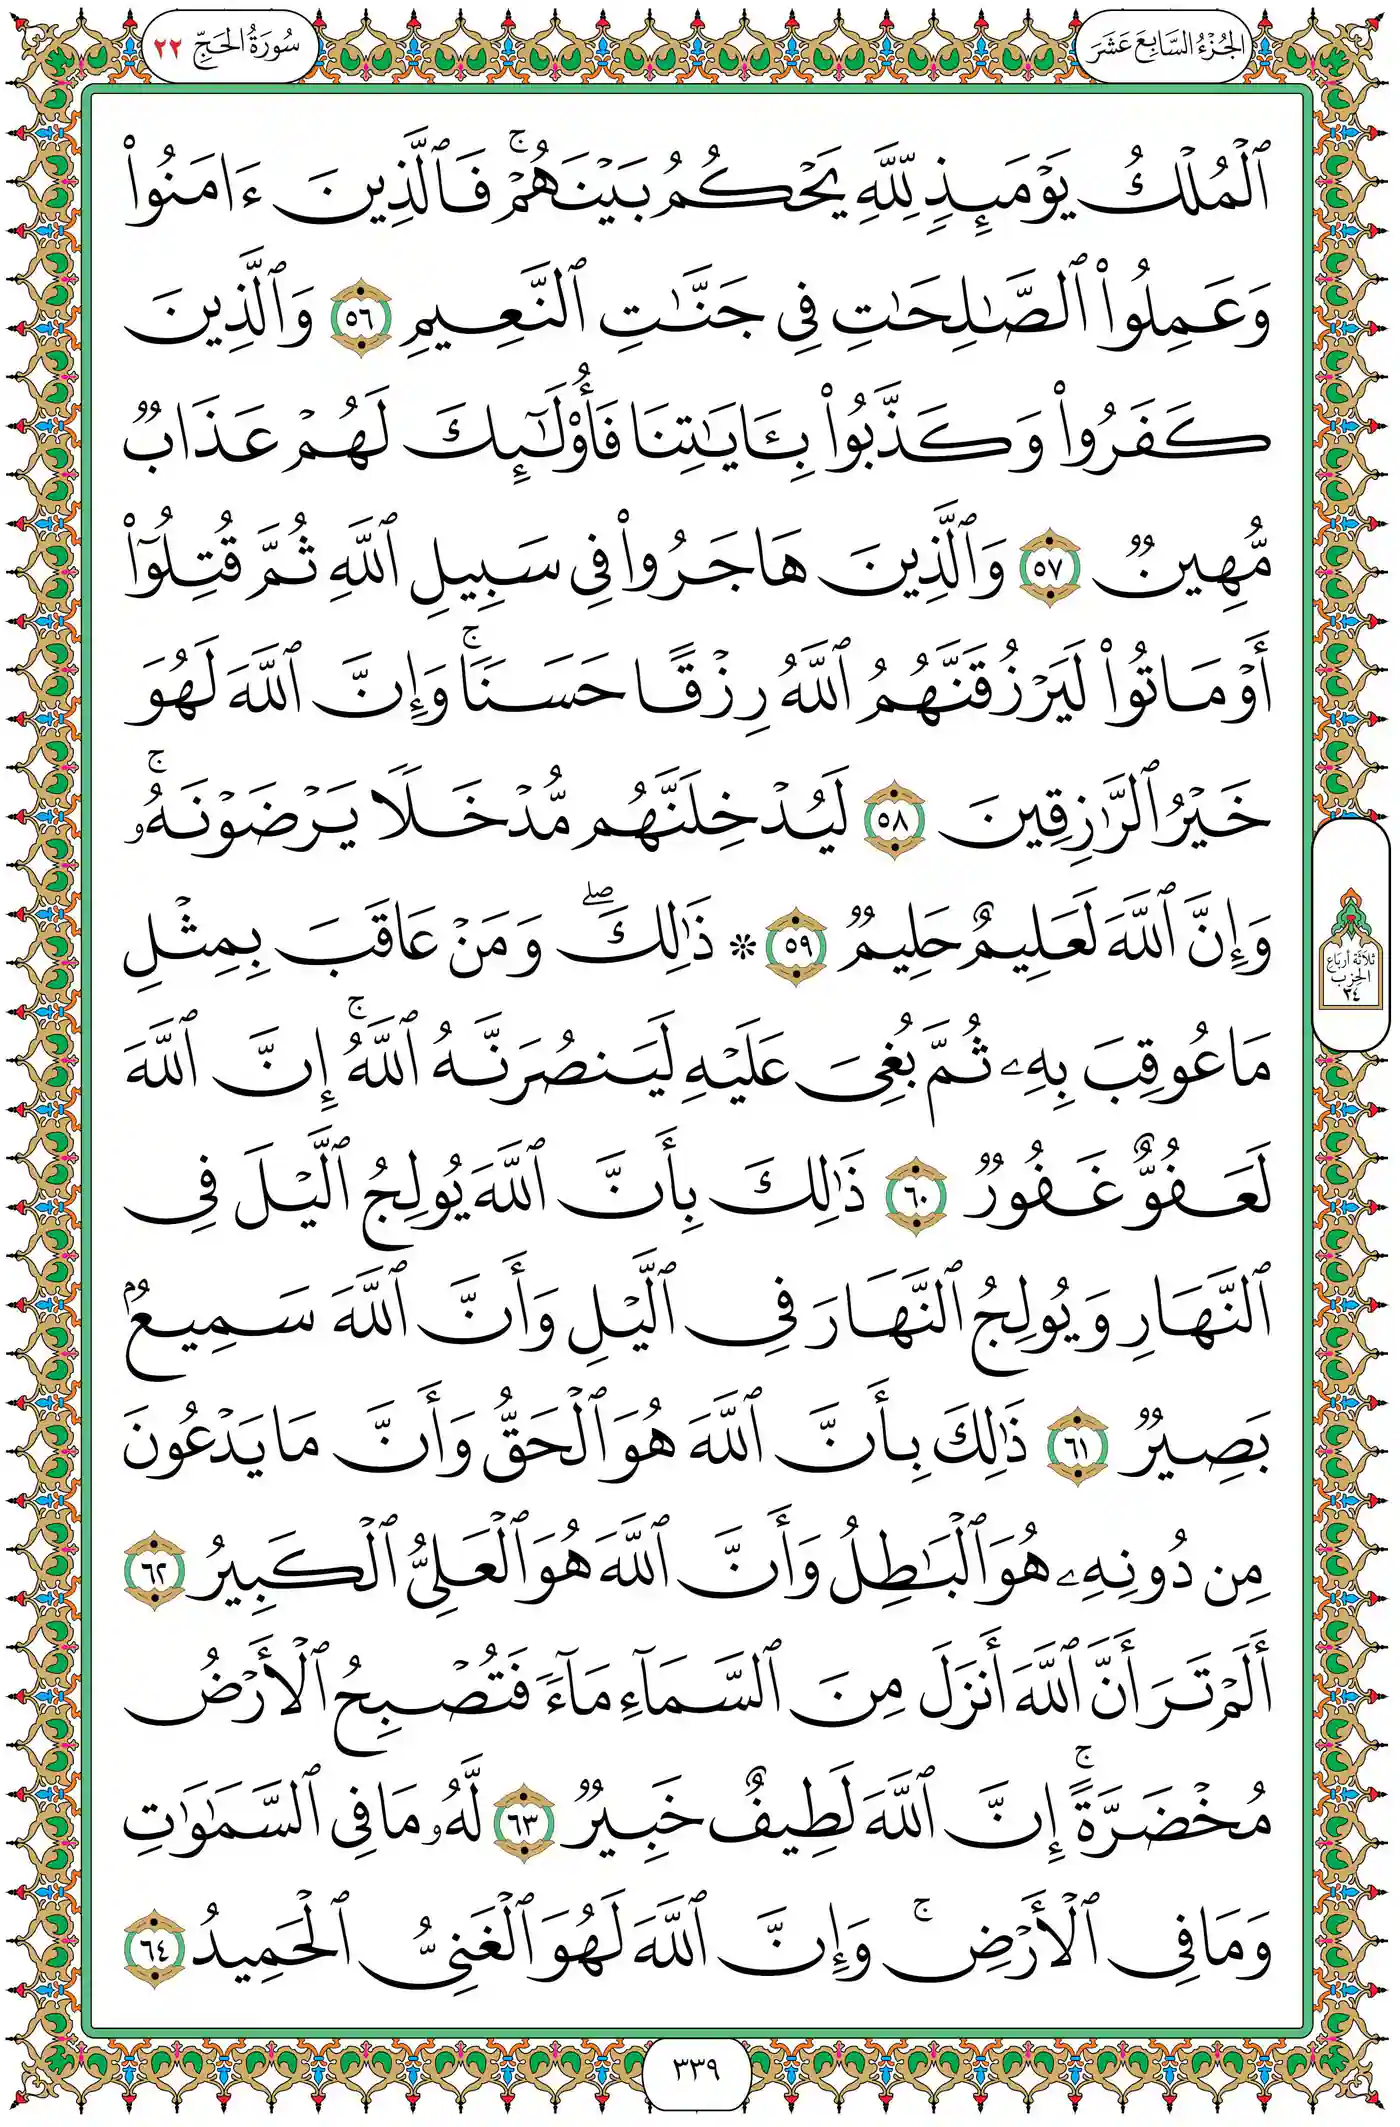 الجُزْءُ السَّابِعَ عَشَرَ
سُورَةُ الحَجِّ ٢٢
ٱلۡمُلۡكُ يَوۡمَئِذٖ لِّلَّهِ يَحۡكُمُ بَيۡنَهُمۡۚ فَٱلَّذِينَ ءَامَنُواْ
وَعَمِلُواْ ٱلصَّٰلِحَٰتِ فِي جَنَّٰتِ ٱلنَّعِيمِ ٥٦ وَٱلَّذِينَ
كَفَرُواْ وَكَذَّبُواْ بِـَٔايَٰتِنَا فَأُوْلَٰٓئِكَ لَهُمۡ عَذَابٞ
مُّهِينٞ ٥٧ وَٱلَّذِينَ هَاجَرُواْ فِي سَبِيلِ ٱللَّهِ ثُمَّ قُتِلُوٓاْ
أَوۡ مَاتُواْ لَيَرۡزُقَنَّهُمُ ٱللَّهُ رِزۡقًا حَسَنٗاۚ وَإِنَّ ٱللَّهَ لَهُوَ
خَيۡرُ ٱلرَّٰزِقِينَ ٥٨ لَيُدۡخِلَنَّهُم مُّدۡخَلٗا يَرۡضَوۡنَهُۥۚ
وَإِنَّ ٱللَّهَ لَعَلِيمٌ حَلِيمٞ ٥٩ * ذَٰلِكَۖ وَمَنۡ عَاقَبَ بِمِثۡلِ
مَا عُوقِبَ بِهِۦ ثُمَّ بُغِيَ عَلَيۡهِ لَيَنصُرَنَّهُ ٱللَّهُۚ إِنَّ ٱللَّهَ
لَعَفُوٌّ غَفُورٞ ٦٠ ذَٰلِكَ بِأَنَّ ٱللَّهَ يُولِجُ ٱلَّيۡلَ فِي
ٱلنَّهَارِ وَيُولِجُ ٱلنَّهَارَ فِي ٱلَّيۡلِ وَأَنَّ ٱللَّهَ سَمِيعُۢ
بَصِيرٞ ٦١ ذَٰلِكَ بِأَنَّ ٱللَّهَ هُوَ ٱلۡحَقُّ وَأَنَّ مَا يَدۡعُونَ
مِن دُونِهِۦ هُوَ ٱلۡبَٰطِلُ وَأَنَّ ٱللَّهَ هُوَ ٱلۡعَلِيُّ ٱلۡكَبِيرُ ٦٢
أَلَمۡ تَرَ أَنَّ ٱللَّهَ أَنزَلَ مِنَ ٱلسَّمَآءِ مَآءٗ فَتُصۡبِحُ ٱلۡأَرۡضُ
مُخۡضَرَّةًۚ إِنَّ ٱللَّهَ لَطِيفٌ خَبِيرٞ ٦٣ لَّهُۥ مَا فِي ٱلسَّمَٰوَٰتِ
وَمَا فِي ٱلۡأَرۡضِۚ وَإِنَّ ٱللَّهَ لَهُوَ ٱلۡغَنِيُّ ٱلۡحَمِيدُ ٦٤
ثلاثة أرباع
الحزب
٣٤
٣٣٩